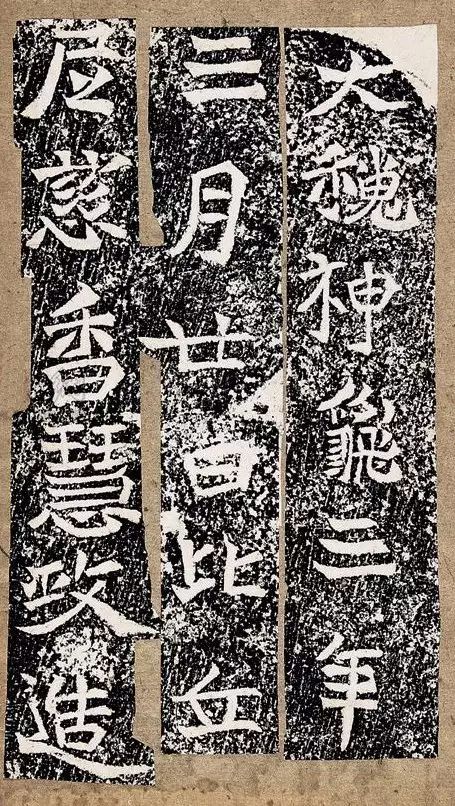 大魏神龜三年
三月廿日比丘
尼慈香慧政造